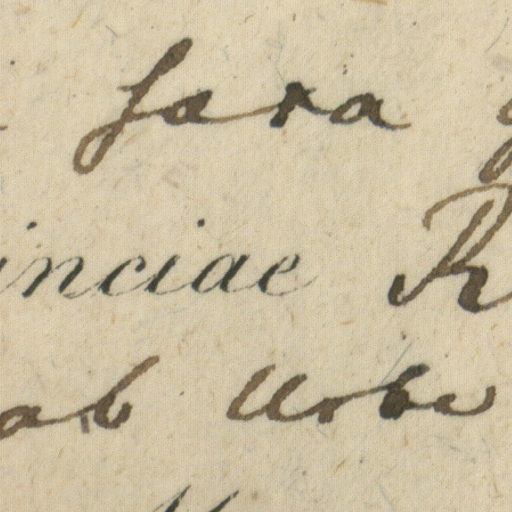 fara
inciae R
ab Urbe